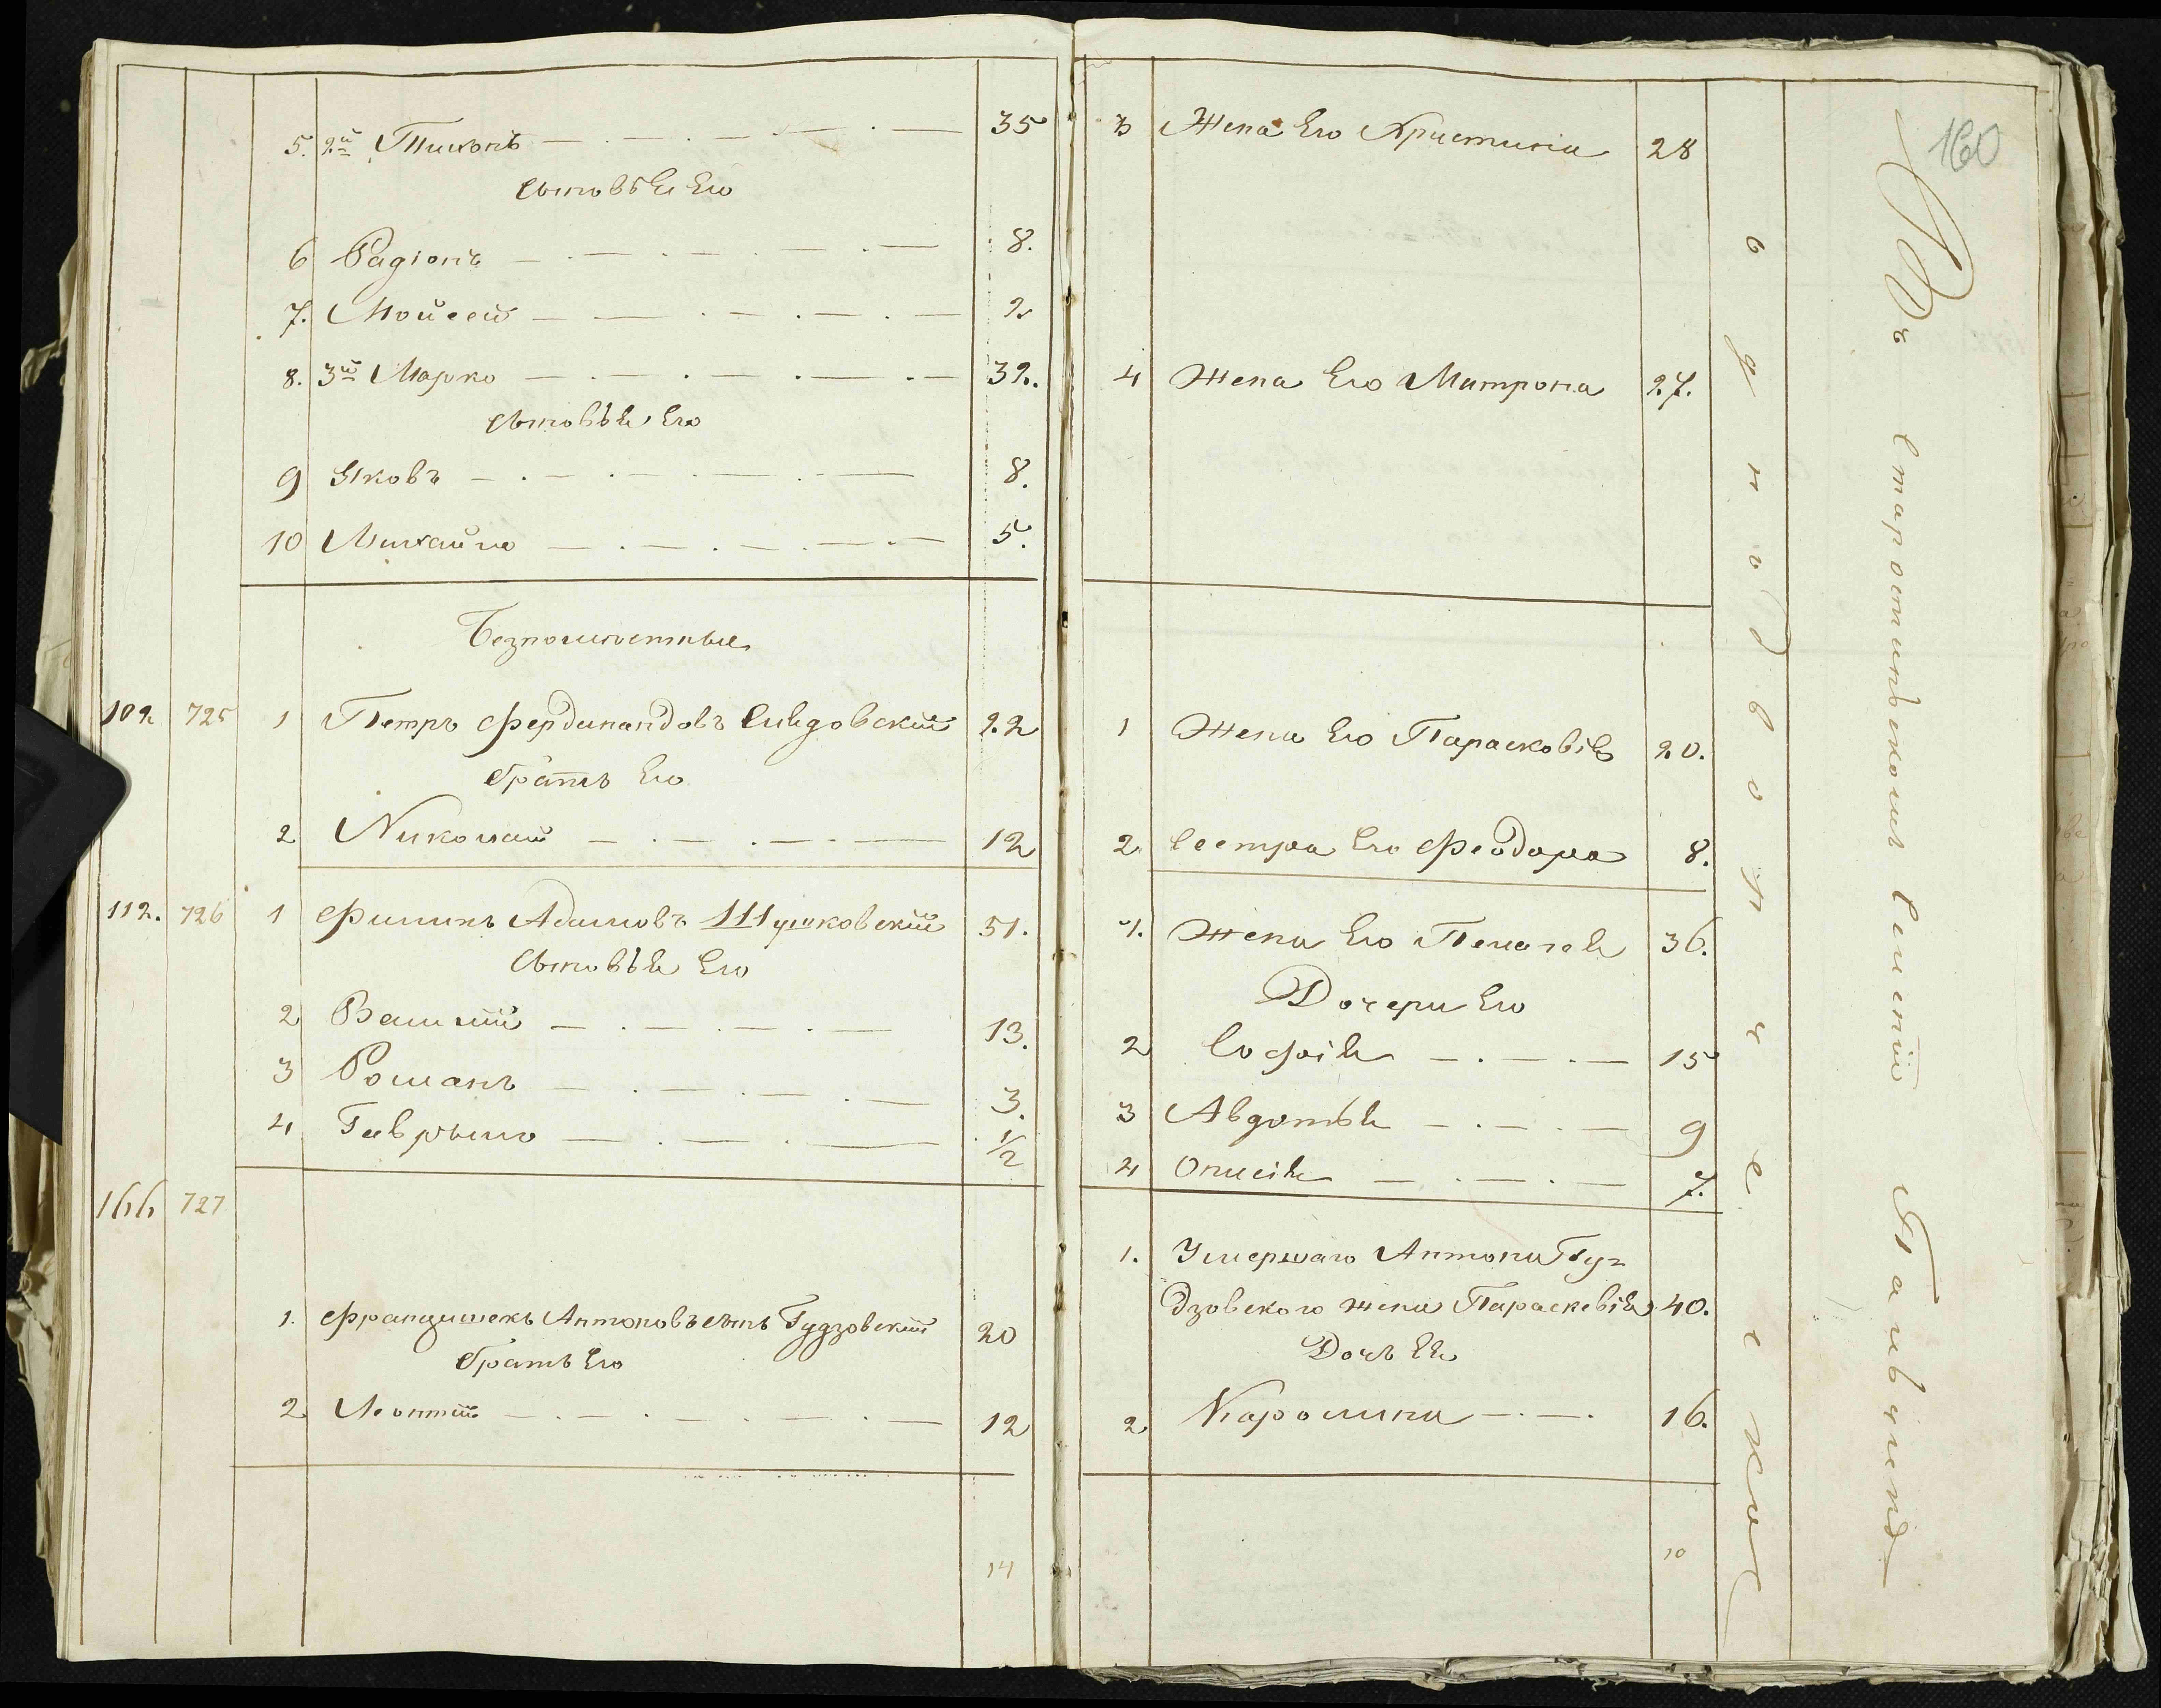 5. 2й Тихонъ 35
сыновья Его
6 Радіонъ 8.
7. Мойсей 2
8. 3й Марко 32.
сыновья Его
9 Яковъ 8.
10 Михайло 5.
Безпоместные
102 725 1 Петръ Фердинандовъ 22
братъ Его
2 Николай 12
112. 726 1 Филипъ Адамовъ Шушковскій 51.
сыновья Его
2 Василий 13.
3 Романъ 3.
4 Гаврыло 1/2
166 727
1. Францишекъ Антоновъ сынъ Гудзовскій 20
братъ Его
2 Леонтій 12
14
160
3 Жена Его Христинія 28
4 Жена Его Матрона 27.
1 Жена Его Парасковія 20.
2 сестра Его Феодора 8.
1. Жена Его Пелагея 36.
Дочери Его
2 Софія 15
3 Авдотья 9
4 Онисія 7.
1. Умершаго Антона Гу-
дзовского жена Параскевія 40.
Дочь Ея
2 Каролина 16.
10
однодворческой
Въ Селеніи